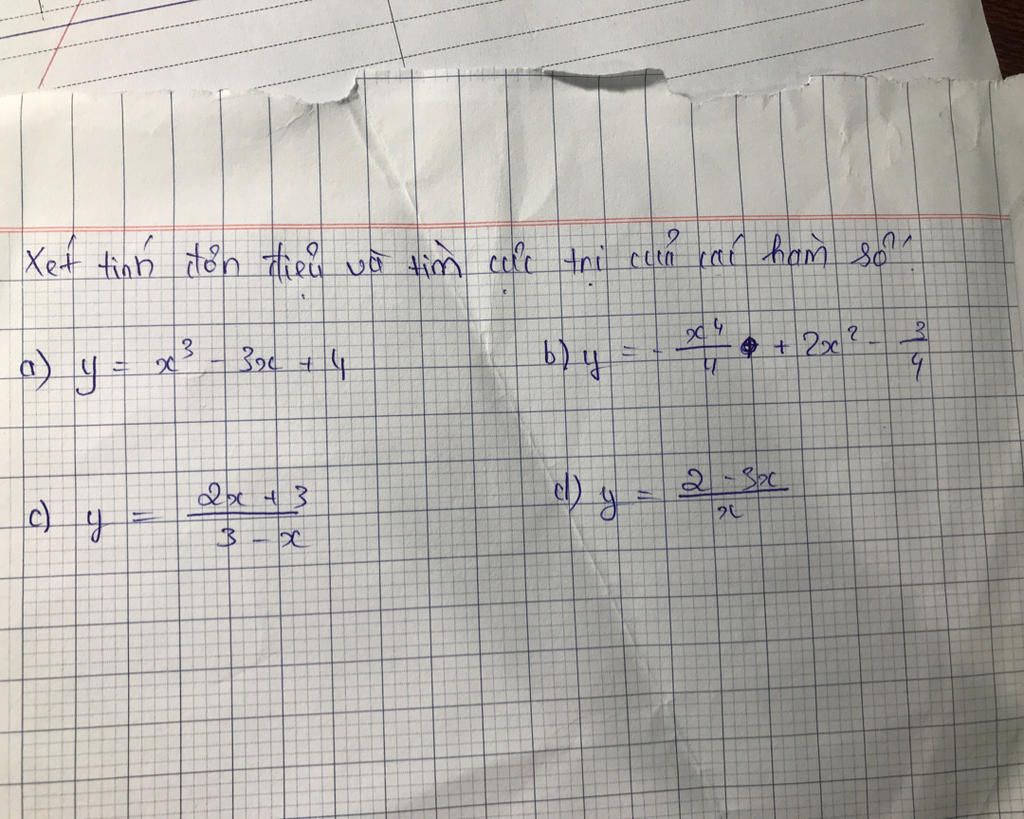 Xét tính đơn điệu và tìm cực trị của các hàm số:
a) y = x³ - 3x + 4 b) y = - x⁴/4 + 2x² - 3/4
c) y = (2x + 3)/(3 - x) d) y = (2 - 3x)/x